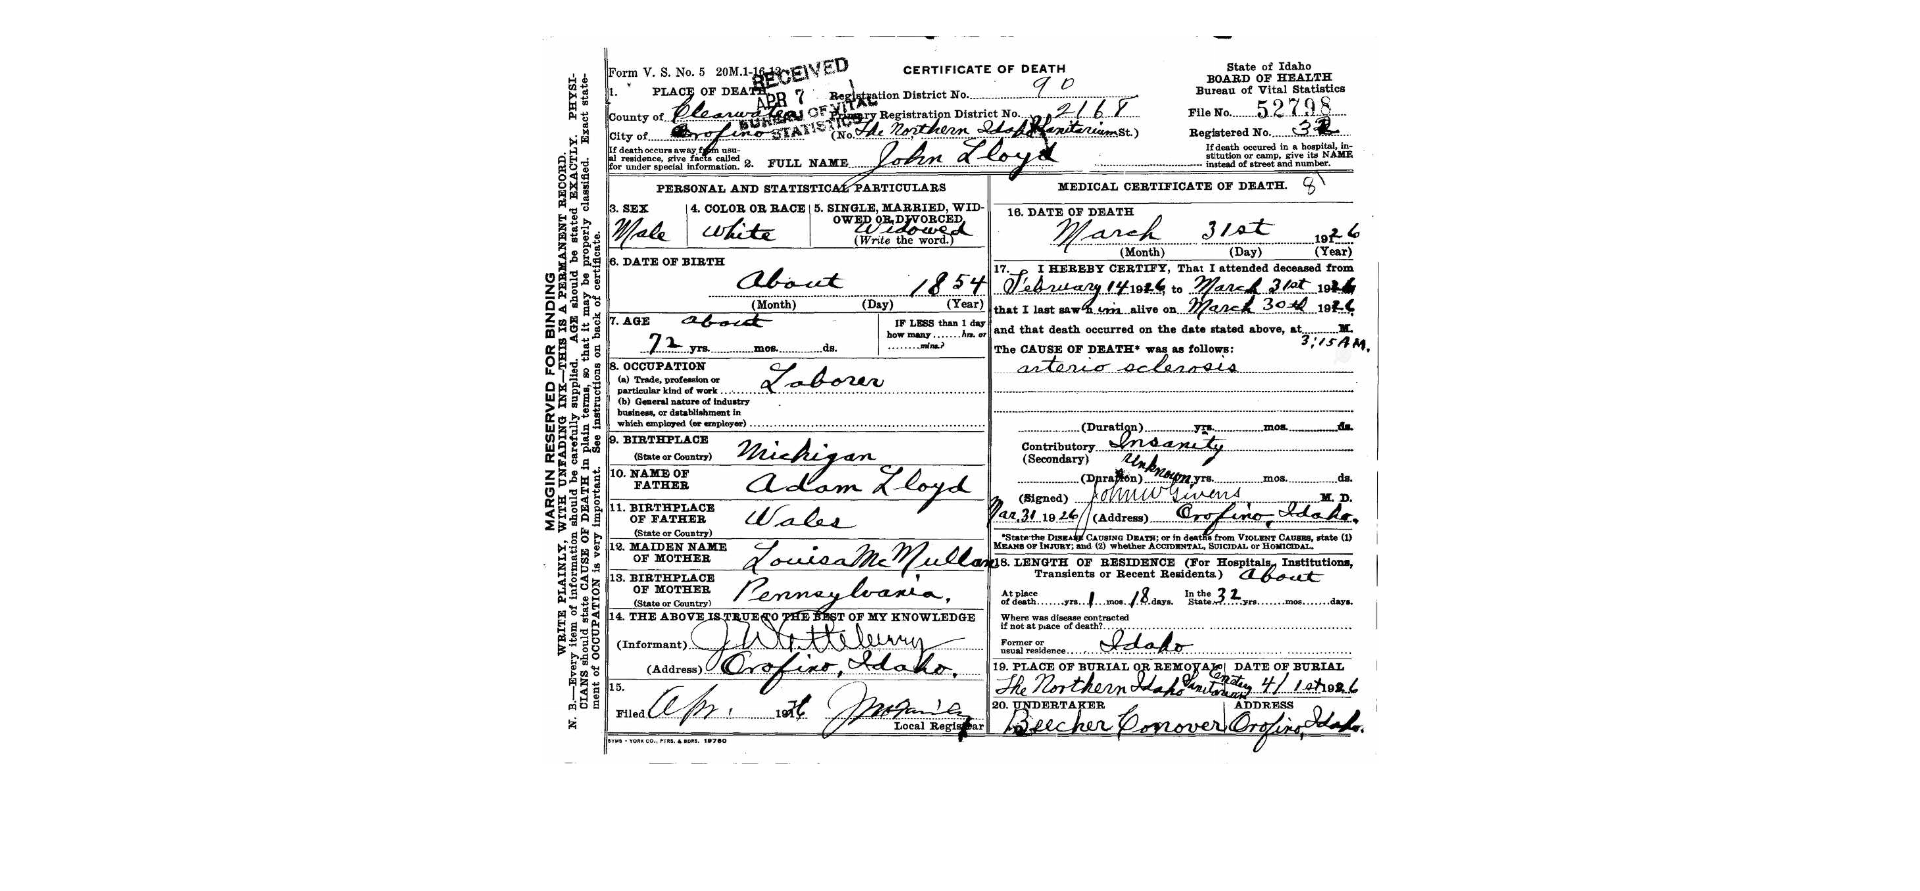 Form V. S. No. 5 20M.1-16-13
RECEIVED
APR 7
BUREAU OF VITAL
STATISTICS
CERTIFICATE OF DEATH
State of Idaho
BOARD OF HEALTH
Bureau of Vital Statistics
File No. 52798
Registered No. 32
If death occured in a hospital, in-
stitution or camp, give its NAME
instead of street and number.
1. PLACE OF DEATH
Registration District No. 90
County of Clearwater
Primary Registration District No. 2168
City of Orofino (No. The Northern Idaho Sanitarium St.)
If death occurs away from usu-
al residence, give facts called
for under special information.
2. FULL NAME John Lloyd
PERSONAL AND STATISTICAL PARTICULARS
3. SEX
Male
4. COLOR OR RACE
White
5. SINGLE, MARRIED, WID-
OWED OR DIVORCED
Widowed
(Write the word.)
6. DATE OF BIRTH
About 1854
(Month) (Day) (Year)
7. AGE about
72 yrs. mos. ds.
IF LESS than 1 day
how many hrs. or
mins.?
8. OCCUPATION
(a) Trade, profession or
particular kind of work Laborer
(b) General nature of industry
business, or dstablishment in
which employed (or employer)
9. BIRTHPLACE
(State or Country) Michigan
10. NAME OF
FATHER Adam Lloyd
11. BIRTHPLACE
OF FATHER Wales
(State or Country)
12. MAIDEN NAME
OF MOTHER Louisa McMullan
13. BIRTHPLACE
OF MOTHER Pennsylvania,
(State or Country)
14. THE ABOVE IS TRUE TO THE BEST OF MY KNOWLEDGE
(Informant)
(Address) Orofino, Idaho.
15.
Filed Apr. 1 1926
Local Registrar
SYMS - YORK CO., PTRS. & BDRS. 19760
MEDICAL CERTIFICATE OF DEATH. 81
16. DATE OF DEATH
March 31st 1926
(Month) (Day) (Year)
17. I HEREBY CERTIFY, That I attended deceased from
February 14 1926, to March 31st 1926
that I last saw him alive on March 30th 1926
and that death occurred on the date stated above, at M.
3:15 A.M.
The CAUSE OF DEATH* was as follows:
arterio sclerosis
(Duration) yrs. mos. ds.
Contributory Insanity
(Secondary) Unknown
(Duration) yrs. mos. ds.
(Signed) John W Givens M. D.
Mar. 31 1926 (Address) Orofino, Idaho.
*State the DISEASE CAUSING DEATH; or in deaths from VIOLENT CAUSES, state (1)
MEANS OF INJURY; and (2) whether ACCIDENTAL, SUICIDAL or HOMICIDAL.
18. LENGTH OF RESIDENCE (For Hospitals, Institutions,
Transients or Recent Residents.) About
At place
of death yrs. 1 mos. 18 days.
In the
State 32 yrs. mos. days.
Where was disease contracted
if not at place of death?
Former or
usual residence Idaho
19. PLACE OF BURIAL OR REMOVAL
The Northern Idaho Sanitarium
DATE OF BURIAL
4/1st 1926
20. UNDERTAKER
Beecher Conover
ADDRESS
Orofino, Idaho.
MARGIN RESERVED FOR BINDING
WRITE PLAINLY, WITH UNFADING INK—THIS IS A PERMANENT RECORD.
N. B.—Every item of information should be carefully supplied. AGE should be stated EXACTLY. PHYSI-
CIANS should state CAUSE OF DEATH in plain terms, so that it may be properly classified. Exact state-
ment of OCCUPATION is very important. See instructions on back of certificate.